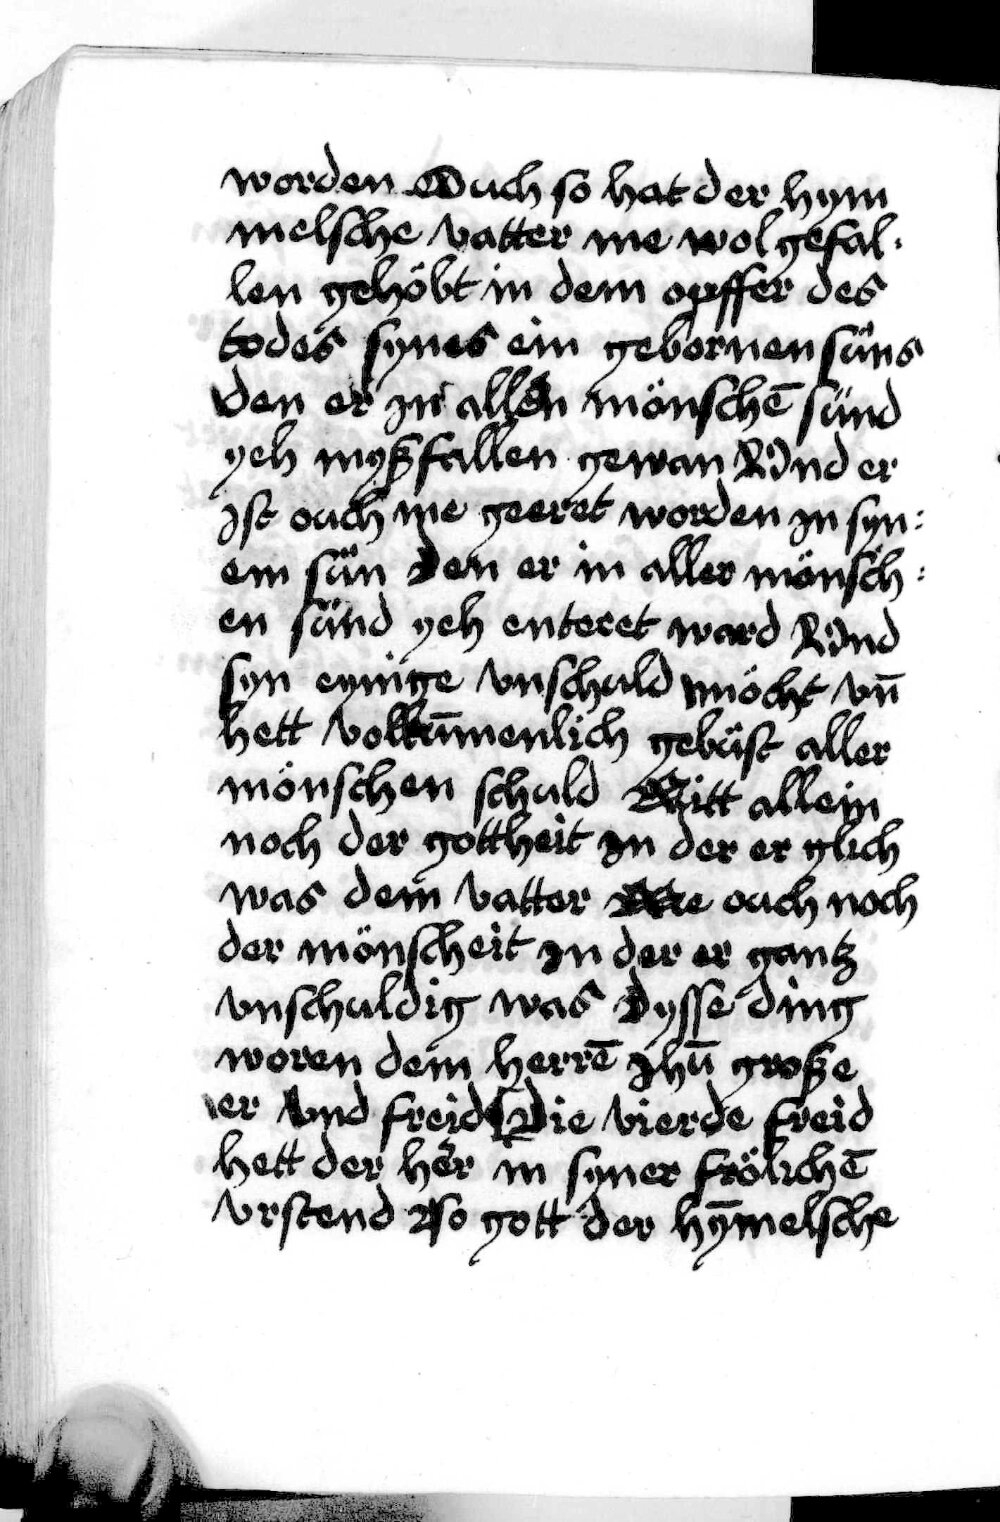 worden Ouch so hat der hym
melsche vatter me wolgefal-
len gehöbt in dem opffer des
todes synes ein gebornen süns
den er in allen mönschē sünd
yeh myßfallen gewan Vnd er
ist ouch me geeret worden in syn:
em sün Den er in aller mönsch:
en sünd yeh enteret ward Vnd
syn eynige vnschuld möcht vn̄
hett vollkūmenlich gebüst aller
mönschen schuld Nitt allein
noch der gottheit in der er glich
was dem vatter Me ouch noch
der mönscheit in der er gantz
vnschuldig was Dysse ding
woren dem herrē Jhū große
er vnd freid Die vierde freid
hett der her in syner frölichē
vrstend So gott der hȳmelsche